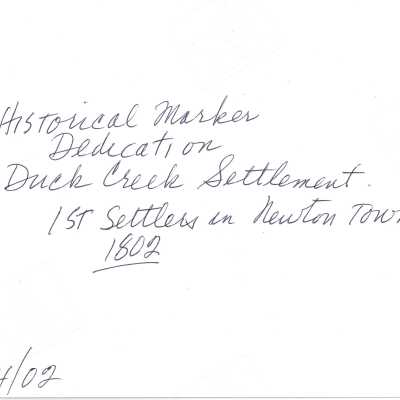 Historical Marker
Dedication
Duck Creek Settlement.
1st Settlers in Newton Town
1802
4/02